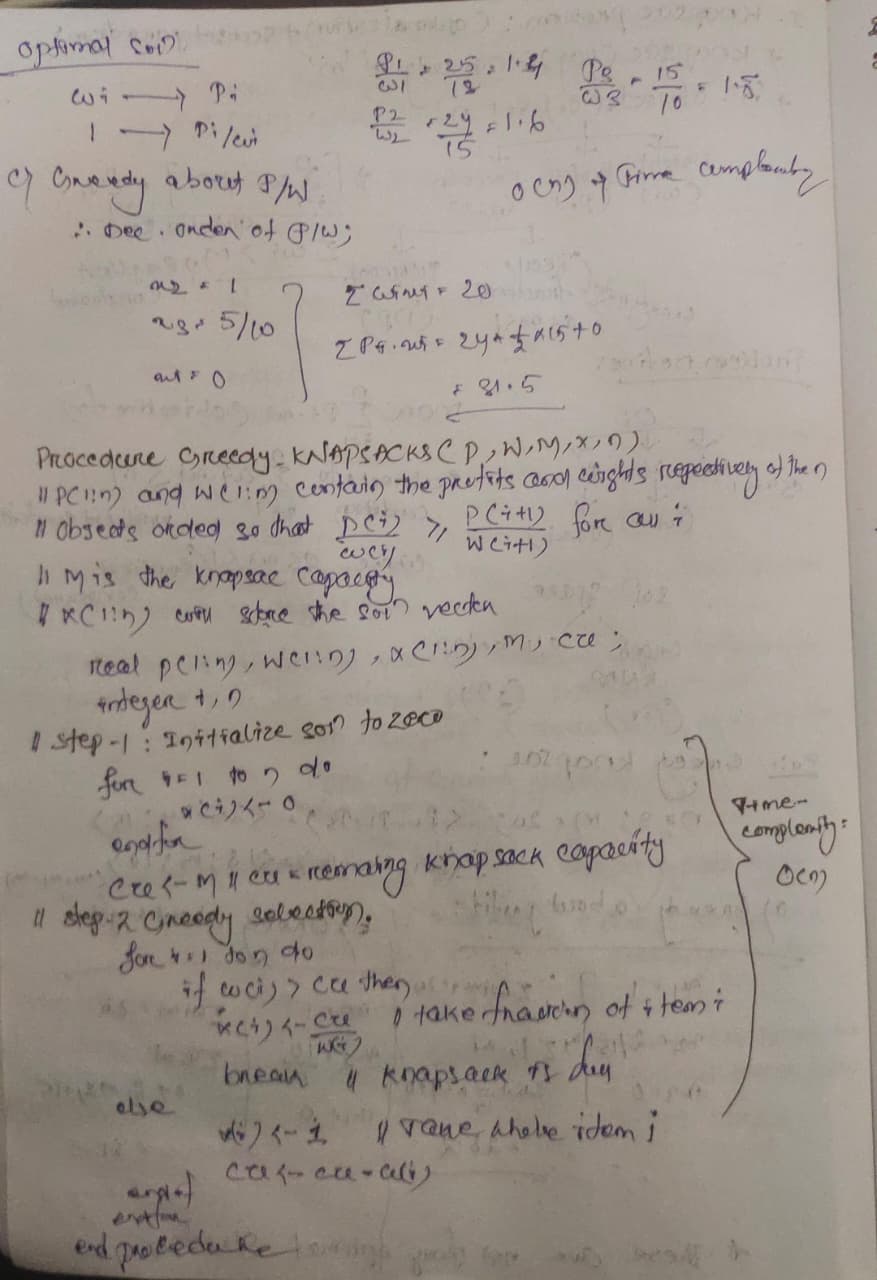 Optimal Soln
wi → Pi
1 → Pi/wi
P1/W1 = 25/18 = 1.4
P2/W2 = 24/15 = 1.6
P3/W3 = 15/10 = 1.5
O(n) → Time complexity
c) Greedy about P/W
∴ Dec. order of P/W;
x2 = 1
x3 = 5/10
x1 = 0
Σ wixi = 20
Σ Pi.xi = 24 + 1/2 x 15 + 0
= 31.5
Procedure Greedy-KNAPSACKS (P, W, M, X, n)
// P(1:n) and W(1:n) contain the profits and weights respectively of the n
// Objects orded so that P(i)/w(i) ≥ P(i+1)/W(i+1) for all i
// M is the knapsac capacity
// X(1:n) will store the soln vector
real P(1:n), W(1:n), X(1:n), M, cu;
integer i, n
// Step-1: Initialize soln to zero
for i=1 to n do
x(i) <- 0
endfor
cu <- M // cu = remaing knapsack capacity
// step-2 Greedy selection.
for i=1 to n do
if w(i) > cu then
x(i) <- cu/W(i) // take fraction of item i
break // knapsack is full
else
x(i) <- 1 // Take whole item i
cu <- cu - w(i)
endif
endfor
end procedure
Time-
complexity:
O(n)